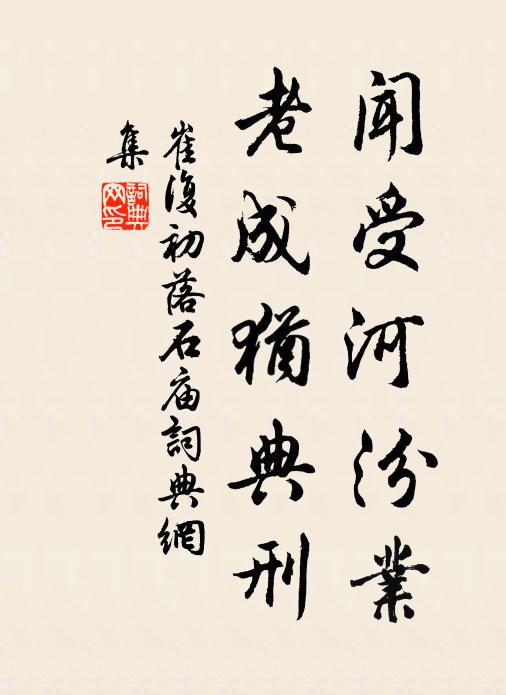 聞受河汾業
老成猶典刑
崔復初落石庙詞典網
集
詞典
网印